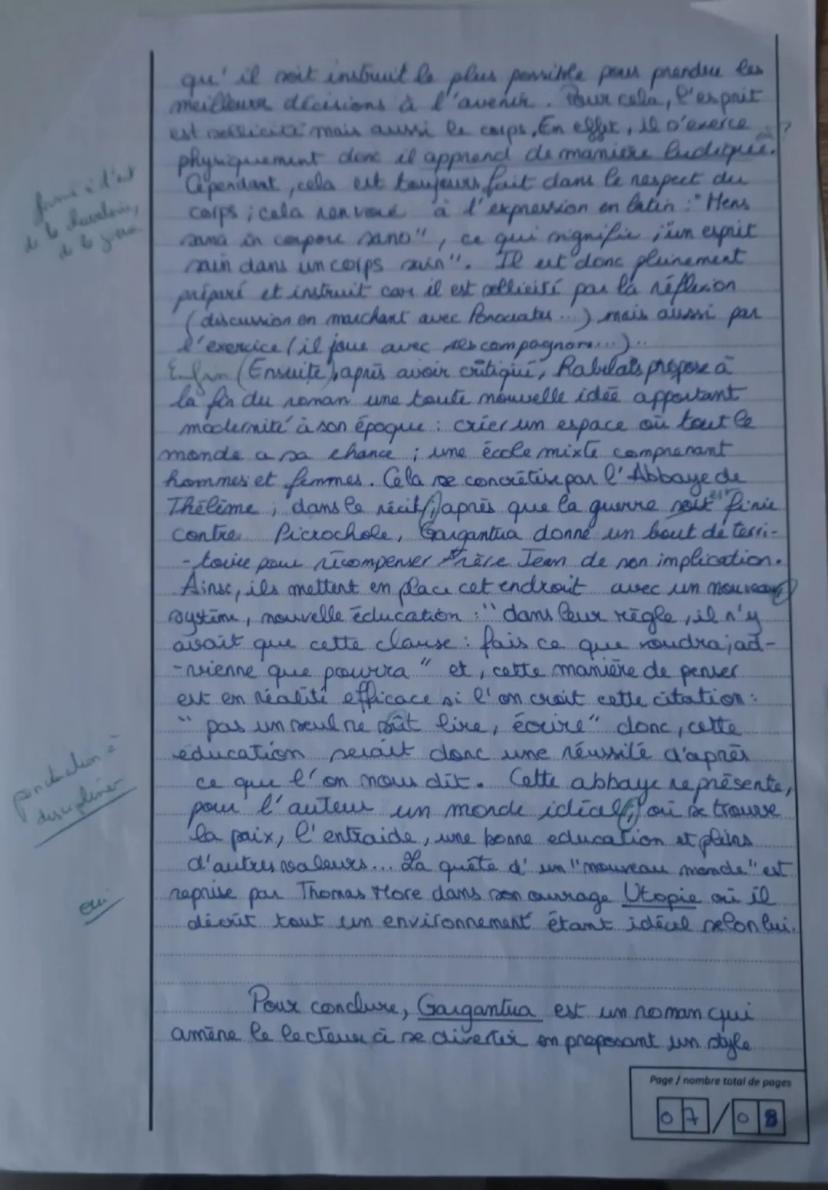 qu'il soit instruit le plus possible pour prendre les
meilleurs décisions à l'avenir. Pour cela, l'esprit
est sollicité mais aussi le corps. En effet, il s'exerce
physiquement donc il apprend de manière ludique. à ?
Cependant, cela est toujours fait dans le respect du
formé à l'art
de la chevalerie,
de la guerre
corps ; cela renvoie à l'expression en latin : "Mens
sana in corpore sano", ce qui signifie ; "un esprit
sain dans un corps sain". Il est donc pleinement
préparé et instruit car il est sollicité par la réflexion
(discussion en marchant avec Ponocrates...) mais aussi par
l'exercice (il joue avec ses compagnons...)..
Enfin (Ensuite), après avoir critiqué, Rabelais propose à
la fin du roman une toute nouvelle idée apportant
modernité à son époque : créer un espace où tout le
monde a sa chance ; une école mixte comprenant
hommes et femmes. Cela se concrétise par l'Abbaye de
Thélème ; dans le récit ; après que la guerre soit est finie
contre Picrochole, Gargantua donne un bout de terri-
-toire pour récompenser Frère Jean de son implication.
Ainsi, ils mettent en place cet endroit avec un nouveau
système, nouvelle éducation : "dans leur règle, il n'y
avait que cette clause : fais ce que voudra, ad-
-vienne que pourra" et, cette manière de penser
est en réalité efficace si l'on croit cette citation :
" pas un seul ne sût lire, écrire" donc, cette
éducation serait donc une réussite d'après
ce que l'on nous dit. Cette abbaye représente,
ponctuation à
discipliner
pour l'auteur un monde idéal ; où se trouve
la paix, l'entraide, une bonne education et pleins
d'autres valeurs... La quête d'un "nouveau monde" est
reprise par Thomas More dans son ouvrage Utopie où il
oui
décrit tout un environnement étant idéal selon lui.
Pour conclure, Gargantua est un roman qui
amène le lecteur à se divertir en proposant un style
Page / nombre total de pages
07/08